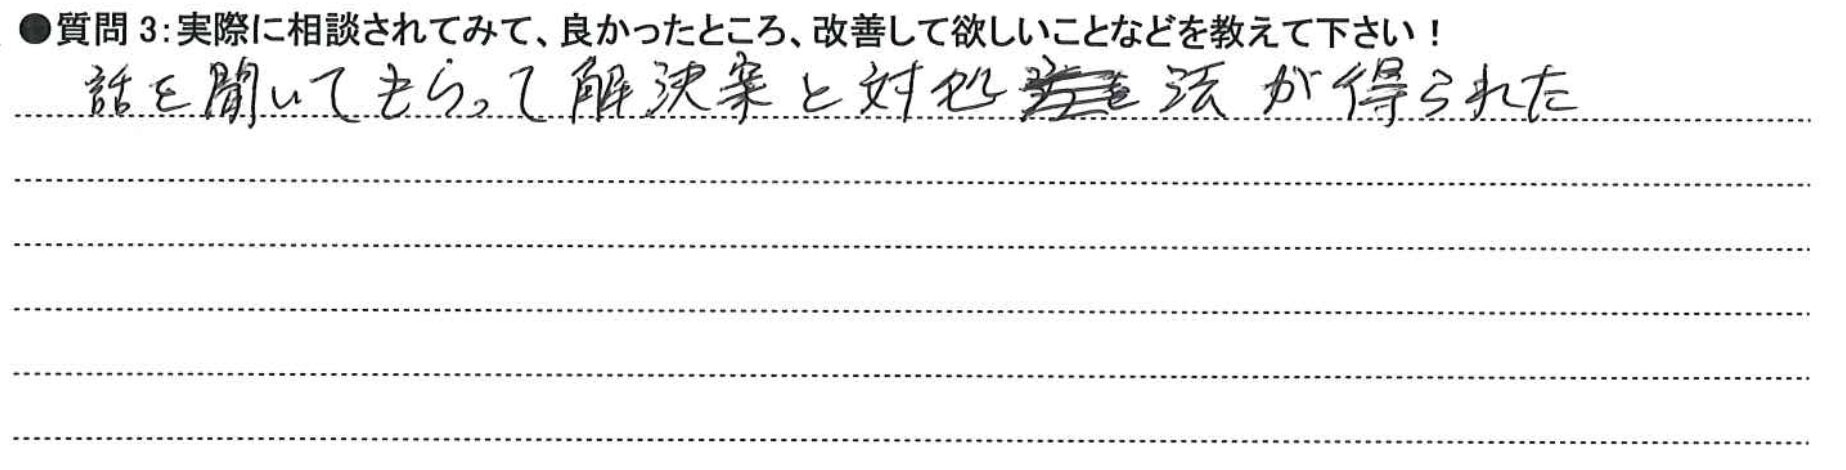 ●質問3:実際に相談されてみて、良かったところ、改善して欲しいことなどを教えて下さい!
話を聞いてもらって解決案と対処法が得られた